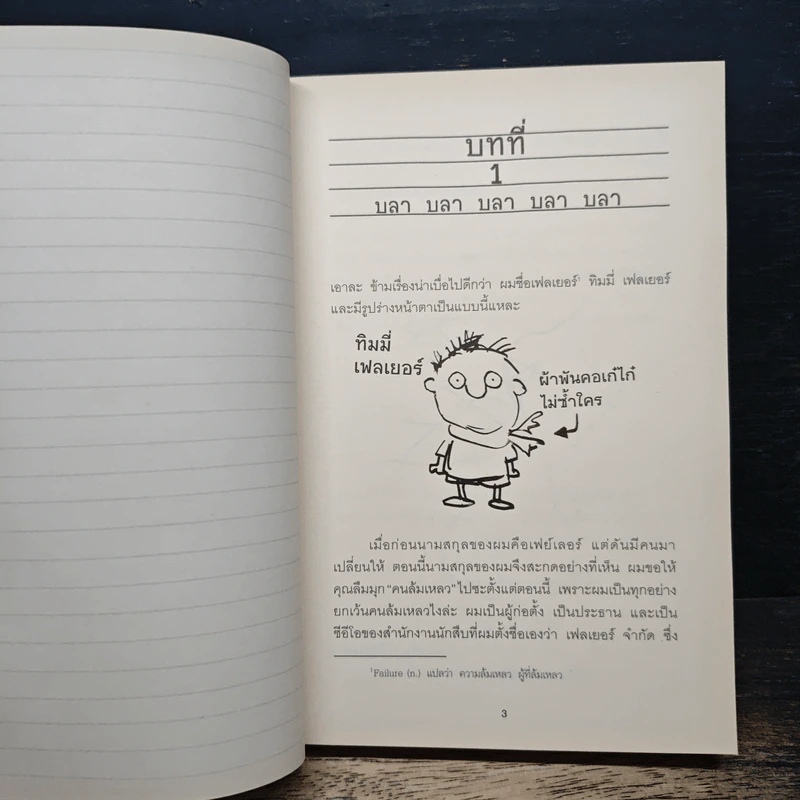 บทที่
1
บลา บลา บลา บลา บลา
เอาละ ข้ามเรื่องน่าเบื่อไปดีกว่า ผมชื่อเฟลเยอร์¹ ทิมมี่ เฟลเยอร์
และมีรูปร่างหน้าตาเป็นแบบนี้แหละ
ทิมมี่
เฟลเยอร์
ผ้าพันคอเก๋ไก๋
ไม่ซ้ำใคร
เมื่อก่อนนามสกุลของผมคือเฟย์เลอร์ แต่ดันมีคนมา
เปลี่ยนให้ ตอนนี้นามสกุลของผมจึงสะกดอย่างที่เห็น ผมขอให้
คุณลืมมุก “คนล้มเหลว” ไปซะตั้งแต่ตอนนี้ เพราะผมเป็นทุกอย่าง
ยกเว้นคนล้มเหลวไงล่ะ ผมเป็นผู้ก่อตั้ง เป็นประธาน และเป็น
ซีอีโอของสำนักงานนักสืบที่ผมตั้งชื่อเองว่า เฟลเยอร์ จำกัด ซึ่ง
¹Failure (n.) แปลว่า ความล้มเหลว ผู้ที่ล้มเหลว
3